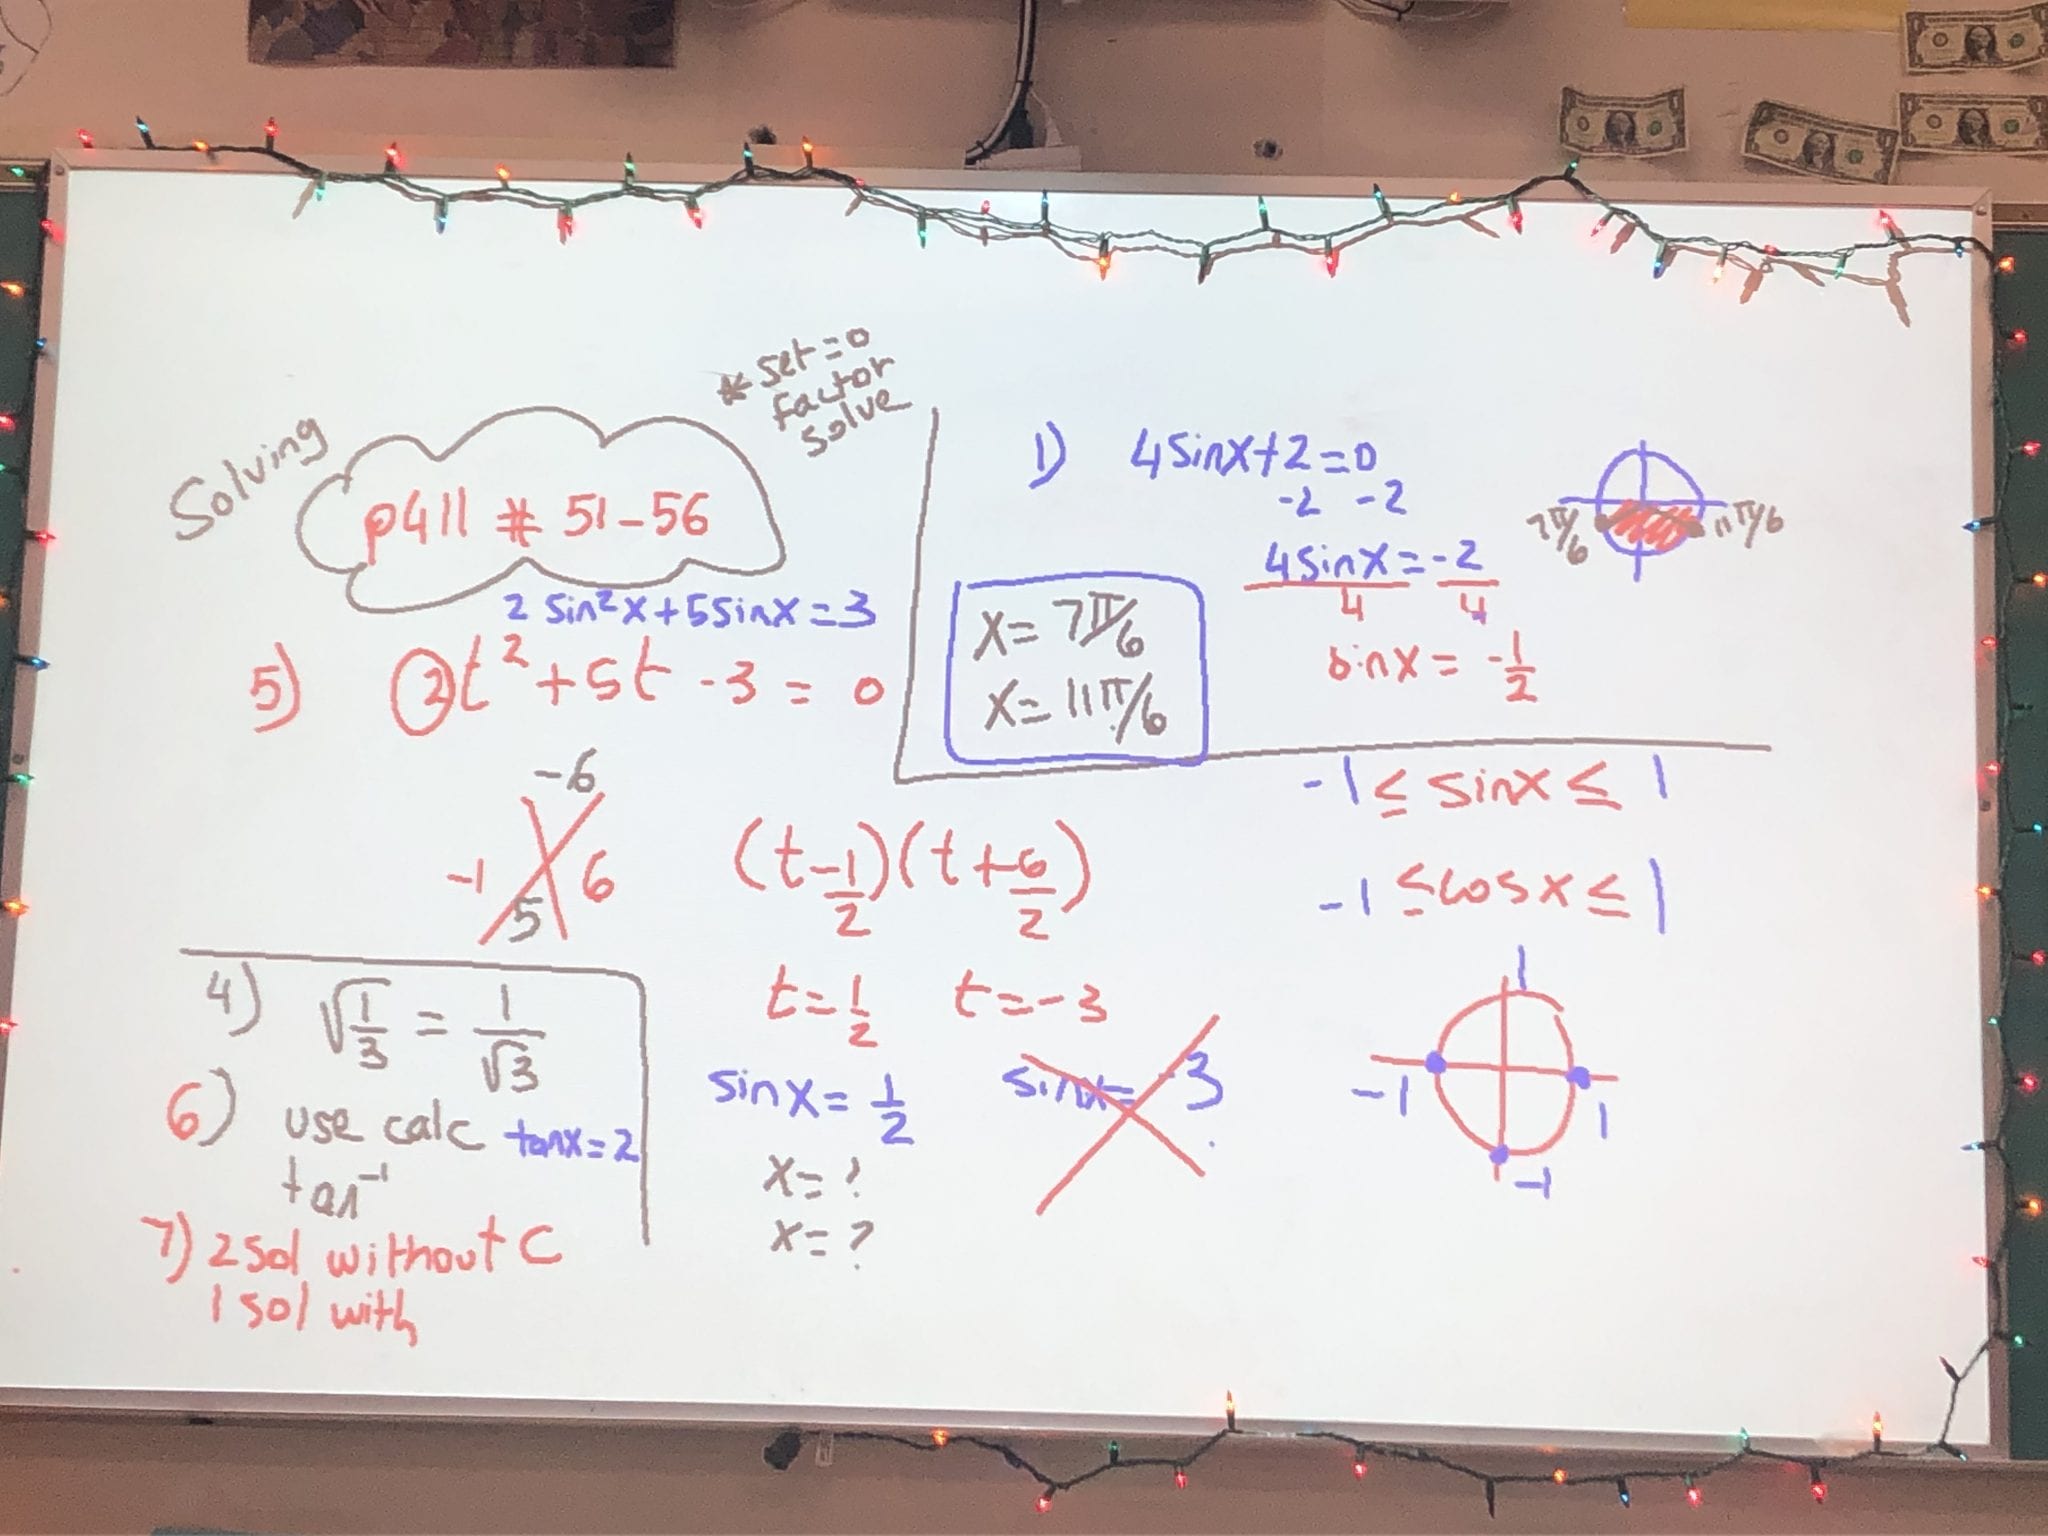 Solving
* set=0
factor
solve
p411 # 51-56
2 sin²x+5sinx=3
5) 2t²+5t-3=0
-6
-1 6
5
(t-1/2)(t+6/2)
t=1/2 t=-3
sinx=1/2 sinx=-3
x=?
x=?
4) √1/3 = 1/√3
6) use calc tanx=2
tan⁻¹
7) 2 sol without C
1 sol with
1) 4sinx+2=0
-2 -2
4sinx=-2
4 4
sinx=-1/2
7π/6 11π/6
x=7π/6
x=11π/6
-1≤sinx≤1
-1≤cosx≤1
1
-1 1
-1